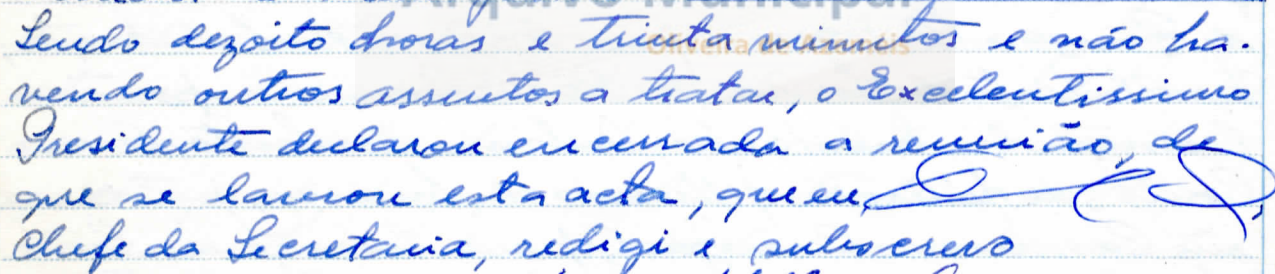 Arquivo Municipal
Oliveira de Azeméis
Sendo dezoito horas e trinta minutos e não ha-
vendo outros assuntos a tratar, o Excelentissimo
Presidente declarou encerrada a reunião, de
que se lavrou esta acta, que eu,
Chefe da Secretaria, redigi e subscrevo